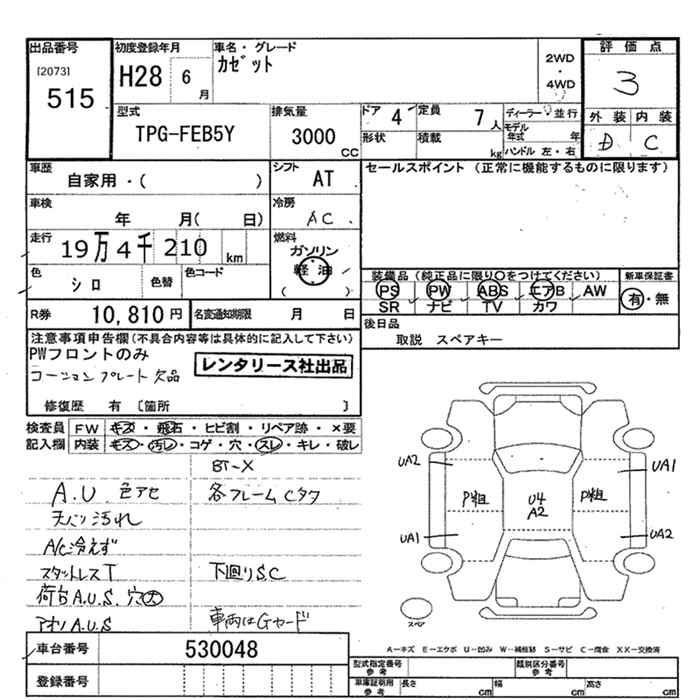 出品番号 初度登録年月 車名・グレード 評価点
[2073] 515 H28 6月 カゼット 2WD・4WD 3
型式 排気量 ドア 4 定員 7人 ディーラー・並行 外装 内装
TPG-FEB5Y 3000cc 形状 積載 kg モデル年式 年 D C
ハンドル 左・右
車歴 シフト セールスポイント (正常に機能するものに限ります)
自家用・( ) AT
車検 冷房
年 月( 日) AC
走行 燃料
19万4千210km ガソリン
軽油
( )
色 色替 色コード
シロ
装備品 (純正品に限り○をつけてください) 新車保証書
PS PW ABS エアB AW 有・無
SR ナビ TV カワ
R券 10,810円 名変通知期限 月 日
後日品
取説 スペアキー
注意事項申告欄(不具合内容等は具体的に記入して下さい)
PWフロントのみ
レンタリース社出品
コーションプレート欠品
修復歴 有 [箇所 ]
検査員 FW キズ・飛石・ヒビ割・リペア跡・×要
記入欄 内装 キズ・汚レ・コゲ・穴・スレ・キレ・破レ
BT-X
A.U. 色アセ 各フレームCタワ
天バリ汚れ
A/C冷えず
スタットレスT 下廻りS.C
荷台A.U.S. 穴大
アオリA.U.S 車両はGセード
UA2 UA1
P粗 U4 A2 P粗
UA1 UA2
スペア
A-キズ E-エクボ U-凹み W-補修跡 S-サビ C-腐食 XX-交換済
車台番号 530048
登録番号
型式指定番号 参考 類別区分番号 参考
車庫証明用 参考 長さ cm 幅 cm 高さ cm